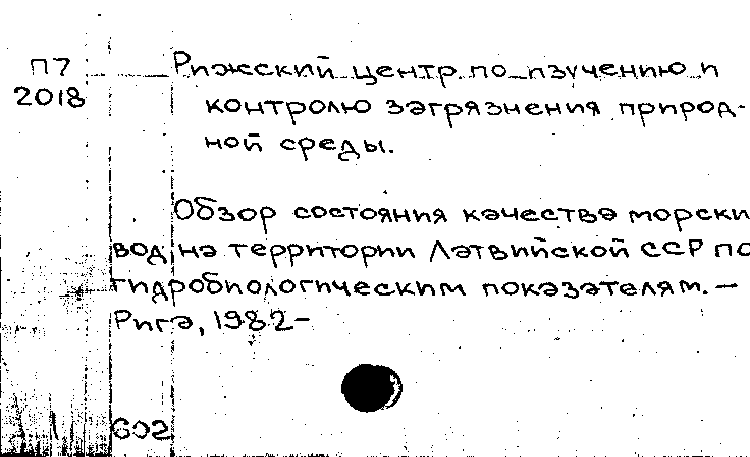 П7 Рижский центр по изучению и
2018 контролю загрязнения природ-
ной среды.
Обзор состояния качества морски
вод на территории Латвийской ССР по
гидробиологическим показателям. —
Рига, 1982-
602